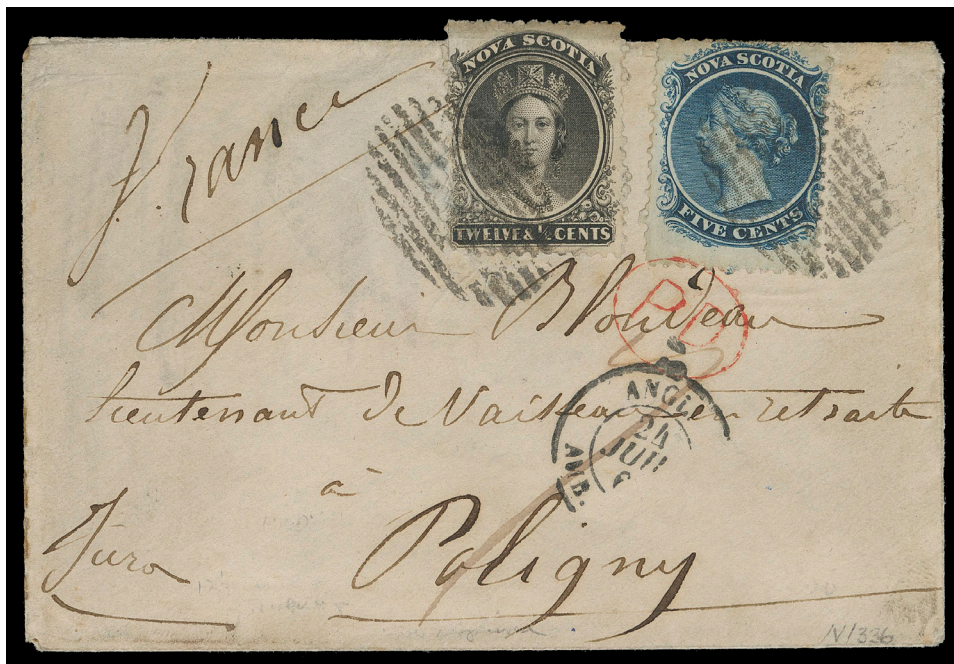 NOVA SCOTIA
TWELVE & ½ CENTS
NOVA SCOTIA
FIVE CENTS
France
PD
Monsieur Blondeau
lieutenant de Vaisseau en retraite
ANGL.
24
JUIL
à
Jura
Poligny
N1336